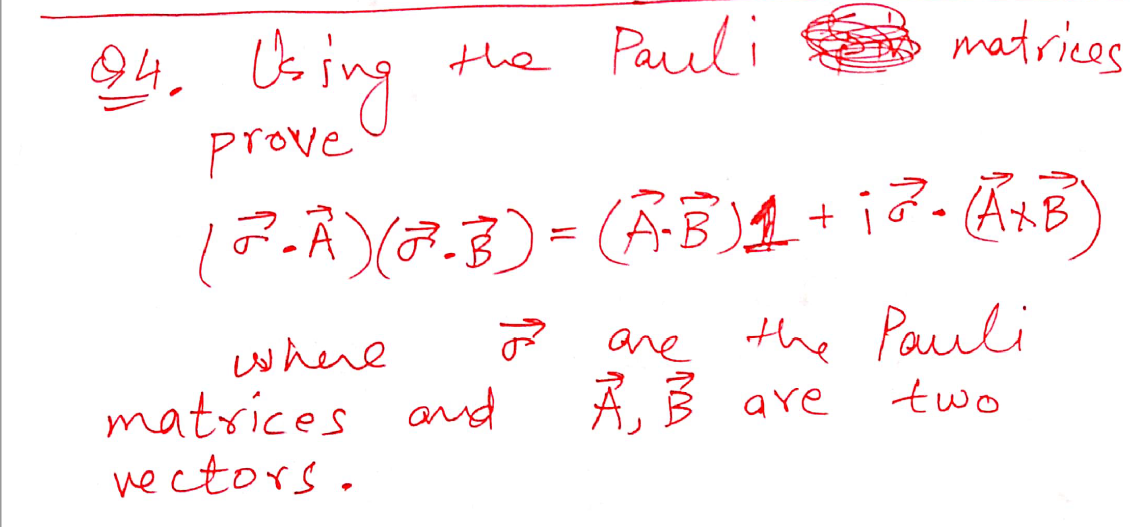 Q4. Using the Pauli matrices
prove
(σ⃗.A⃗)(σ⃗.B⃗) = (A⃗.B⃗)𝟙 + iσ⃗.(A⃗×B⃗)
where σ⃗ are the Pauli
matrices and A⃗, B⃗ are two
vectors.